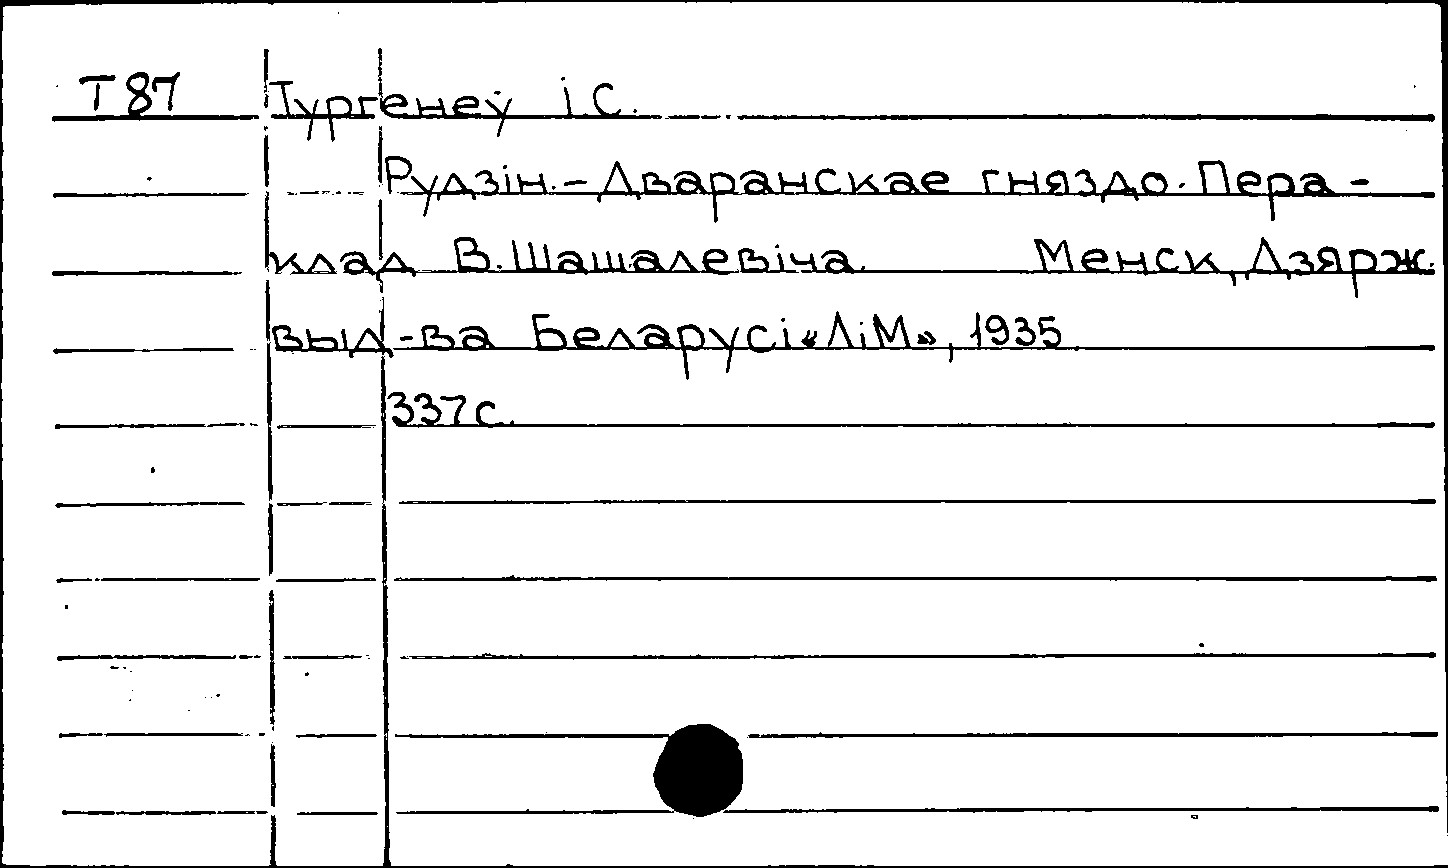 Т 87 Тургенеў І.С.
Рудзін.- Дваранскае гняздо. Пера-
клад В.Шашалевіча. Менск, Дзярж.
выд-ва Беларусі «ЛіМ», 1935
337с.